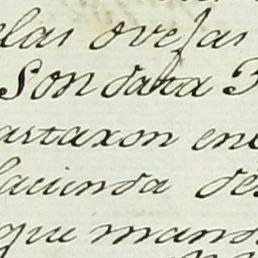 elas ovejas
Son data 3
astaxon en
hacienda de
que mand